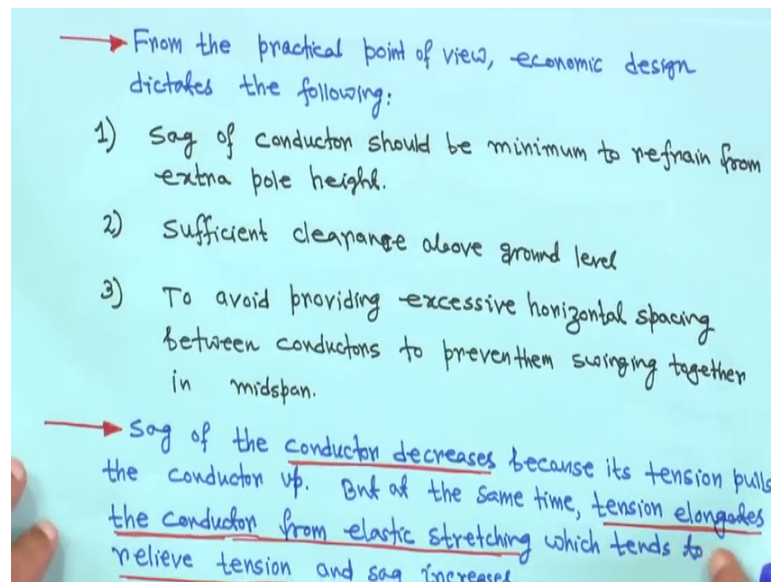 From the practical point of view, economic design
dictates the following:
1) Sag of conductor should be minimum to refrain from
extra pole height.
2) Sufficient clearange above ground level
3) To avoid providing excessive horizontal spacing
between conductors to preventhem swinging together
in midspan.
Sag of the conductor decreases because its tension pulls
the conductor up. But at the same time, tension elongates
the conductor from elastic stretching which tends to
relieve tension and sag increases